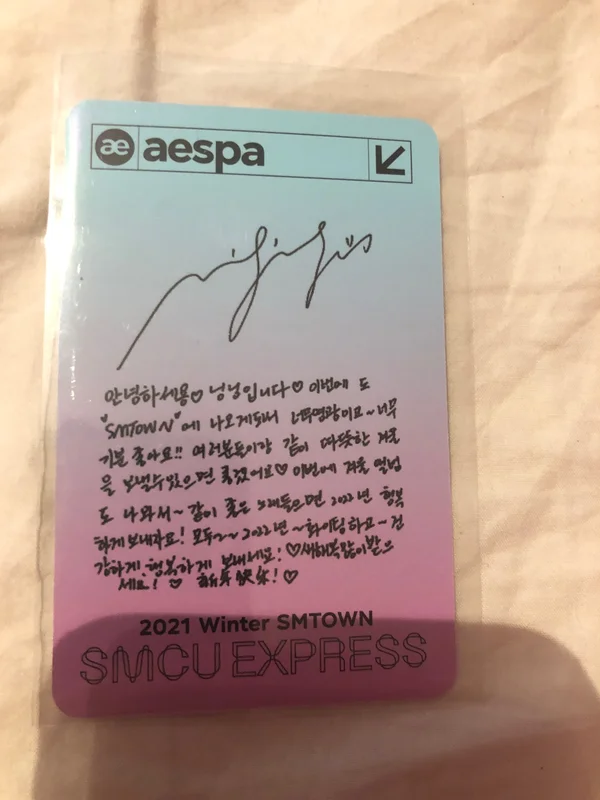 æ aespa
안녕하세용♡ 닝닝입니다♡ 이번에 도
"SMTOWN"에 나오게돼서 너무영광이요~너무
기분 좋아요!! 여러분들이랑 같이 따뜻한 겨울
을 보낼수있으면 좋겠어요♡ 이번에 겨울 앨범
도 나와서~ 같이 좋은 노래들으면 2022년 행복
하게보내자요! 모두~~2022년~화이팅하요~건
강하게, 행복하게 보내세요! ♡새해복많이받으
세요! ♡ 新年快乐! ♡
2021 Winter SMTOWN
SMCU EXPRESS